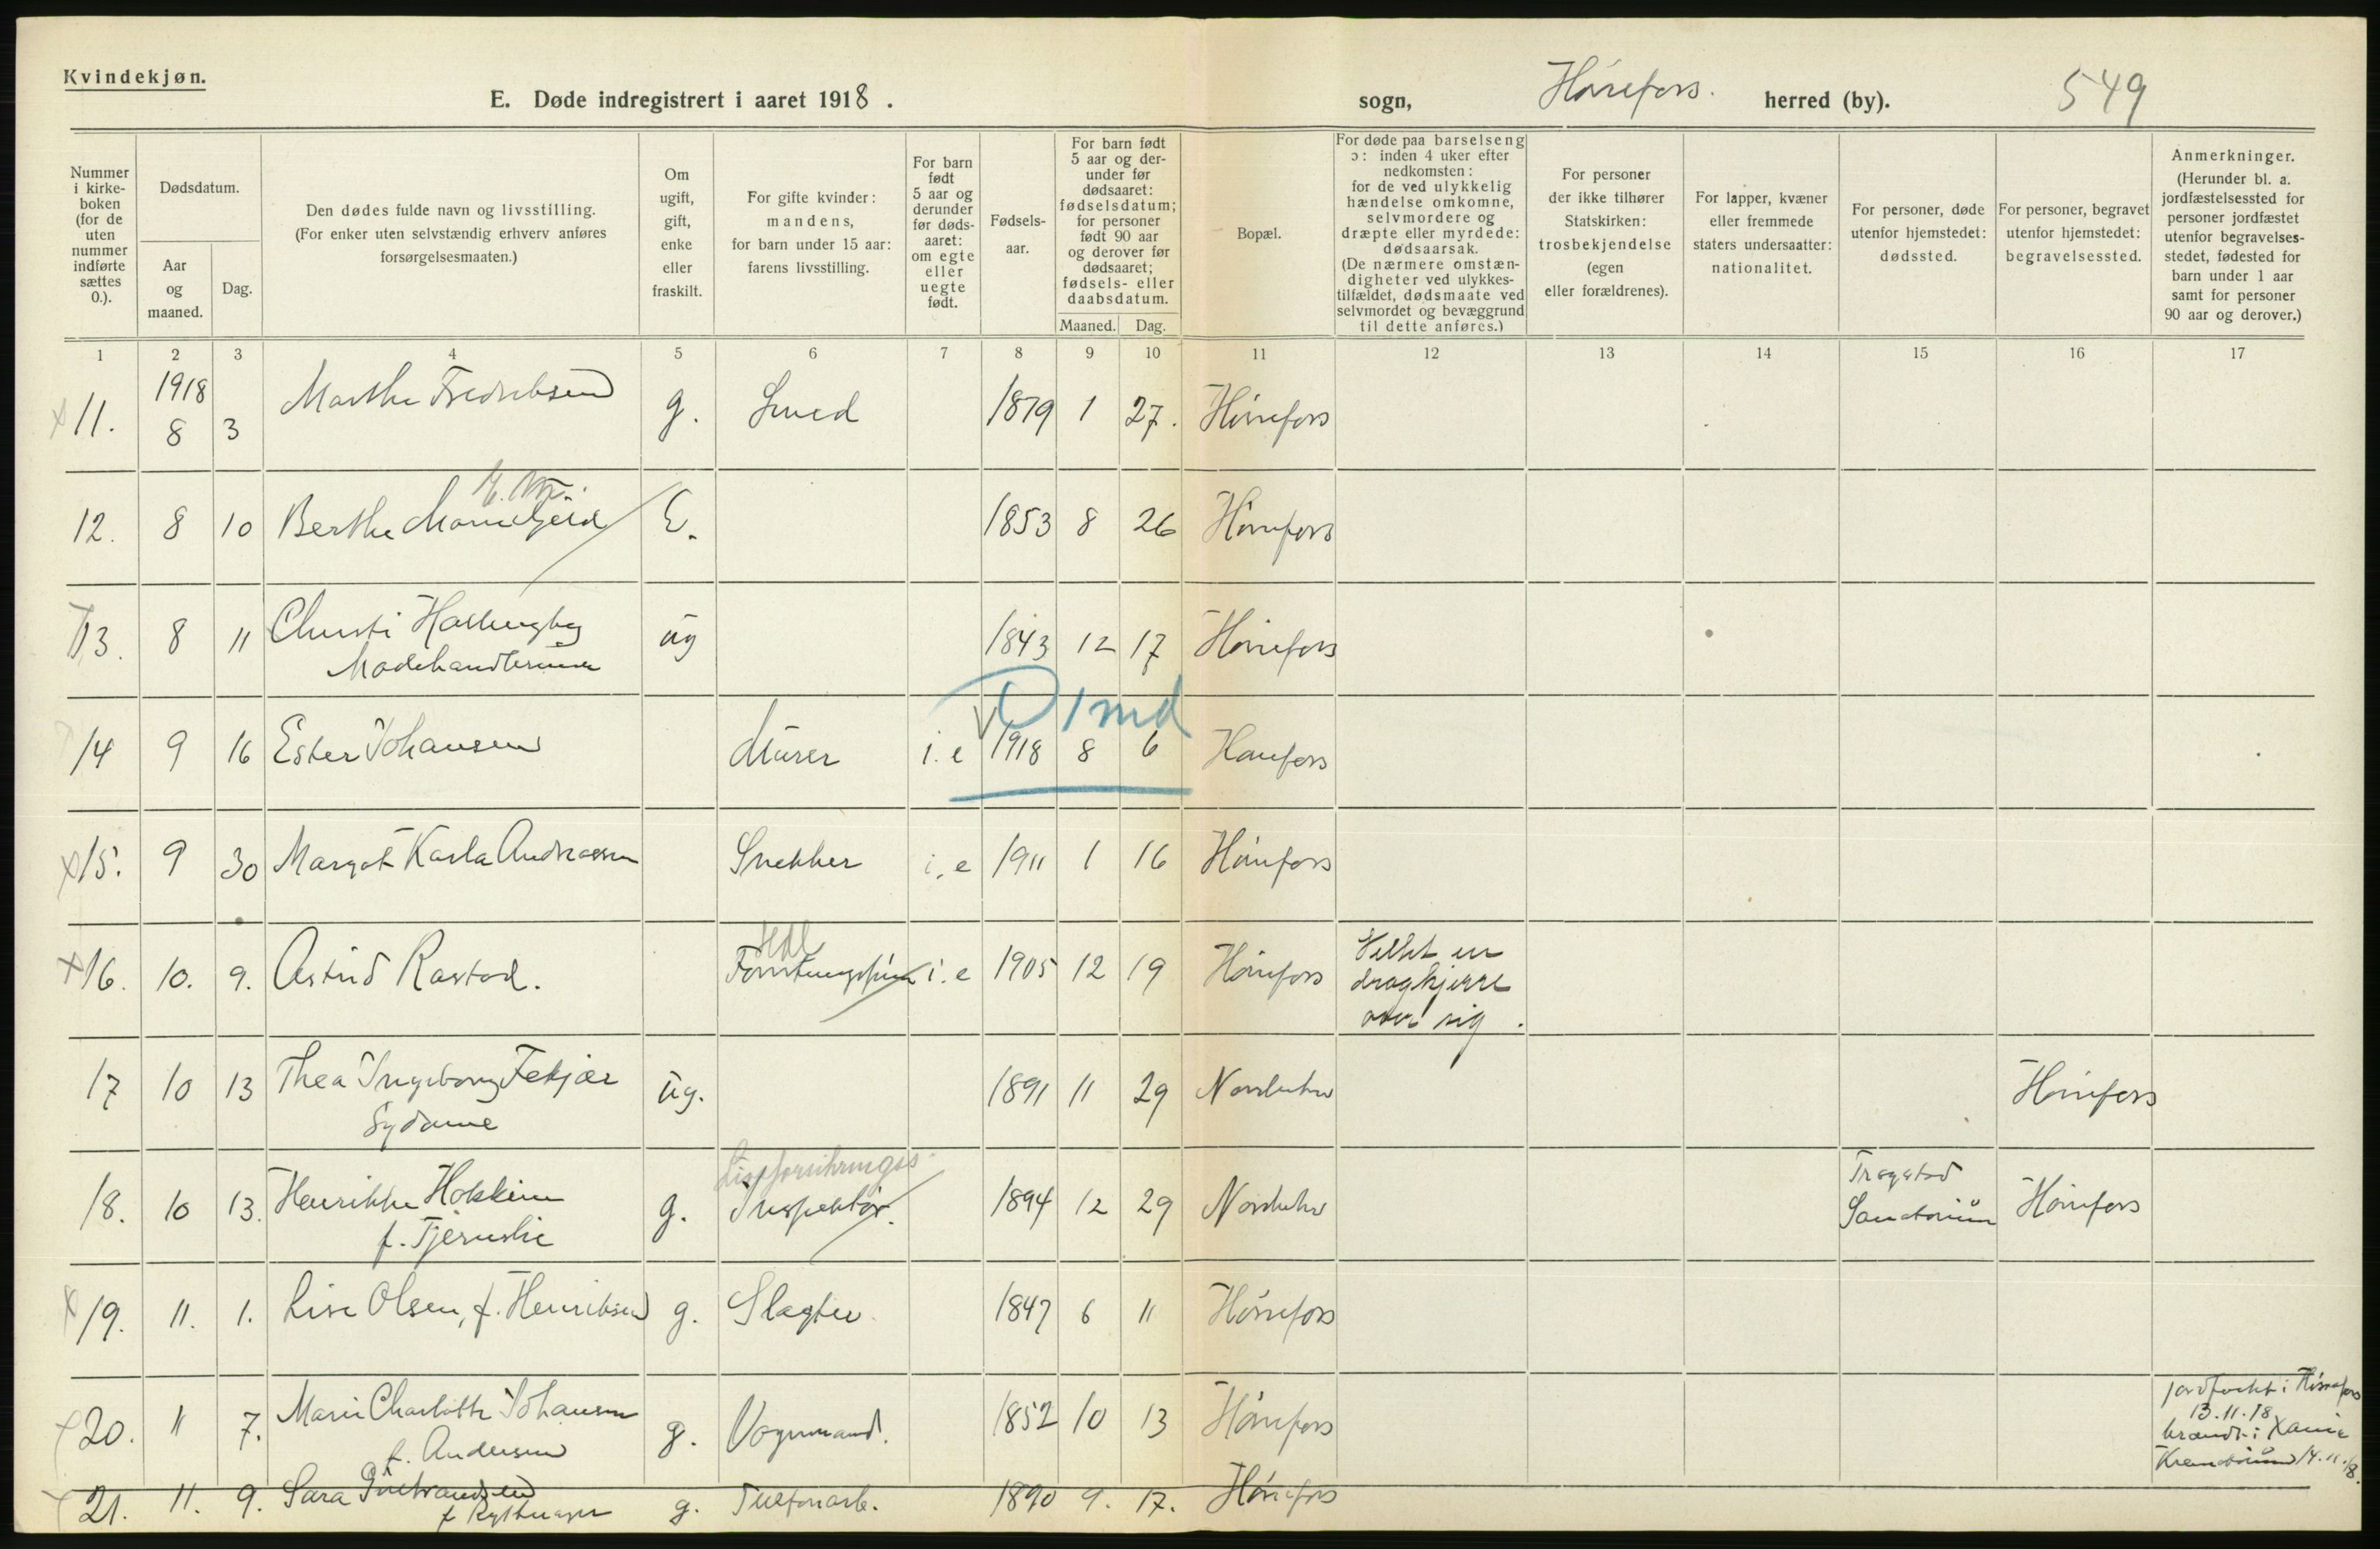 Kvindekjøn.
E. Døde indregistrert i aaret 1918.
sogn, Hønefoss. herred (by). 549
Nummer i kirkeboken (for de uten nummer indførte sættes 0.).
Dødsdatum.
Aar og maaned.
Dag.
Den dødes fulde navn og livsstilling. (For enker uten selvstændig erhverv anføres forsørgelsesmaaten.)
Om ugift, gift, enke eller fraskilt.
For gifte kvinder: mandens, for barn under 15 aar: farens livsstilling.
For barn født 5 aar og derunder før dødsaaret: om egte eller uegte født.
Fødselsaar.
For barn født 5 aar og derunder før dødsaaret: fødselsdatum; for personer født 90 aar og derover før dødsaaret; fødsels- eller daabsdatum.
Maaned. Dag.
Bopæl.
For døde paa barselseng ɔ: inden 4 uker efter nedkomsten: for de ved ulykkelig hændelse omkomne, selvmordere og dræpte eller myrdede: dødsaarsak. (De nærmere omstændigheter ved ulykkestilfældet, dødsmaate ved selvmordet og bevæggrund til dette anføres.)
For personer der ikke tilhører Statskirken: trosbekjendelse (egen eller forældrenes).
For lapper, kvæner eller fremmede staters undersaatter: nationalitet.
For personer, døde utenfor hjemstedet: dødssted.
For personer, begravet utenfor hjemstedet: begravelsessted.
Anmerkninger. (Herunder bl. a. jordfæstelsessted for personer jordfæstet utenfor begravelsesstedet, fødested for barn under 1 aar samt for personer 90 aar og derover.)
1 2 3 4 5 6 7 8 9 10 11 12 13 14 15 16 17
1918
11. 8 3 Marthe Fredriksen g. Smed 1879 1 27. Hønefoss
12. 8 10 Berthe E. 1853 8 26 Hønefoss
13. 8 11 Christi ug 1843 12 17 Hønefoss
Modehandlerinne
1 md
14 9 16 Ester Johansen Murer i. e 1918 8 6 Hønefoss
15. 9 30 Margot Karla Andreassen Snekker i. e 1911 1 16 Hønefoss
16. 10. 9. Astrid Rastad. i. e 1905 12 19 Hønefoss Veltet en
dragkjerre
over sig.
17 10 13 Thea Ingeborg Fekjær ug. 1891 11 29 Norderhov Hønefoss
Sydame
Livsforsikrings
18. 10 13. Henrikke g. Inspektør. 1894 12 29 Norderhov Sanatorium Hønefoss
f. Tjernslie
19. 11. 1. Lise Olsen, f. Henriksen g. Slagter 1847 6 11 Hønefoss
20. 11 7. Marie Charlotte Johansen g. Vognmand. 1852 10 13 Hønefoss
f. Andersen
i Hønefoss
13.11.18
brændt i
14.11.18.
21. 11. 9. Sara g. Telefonarb. 1890 9. 17. Hønefoss